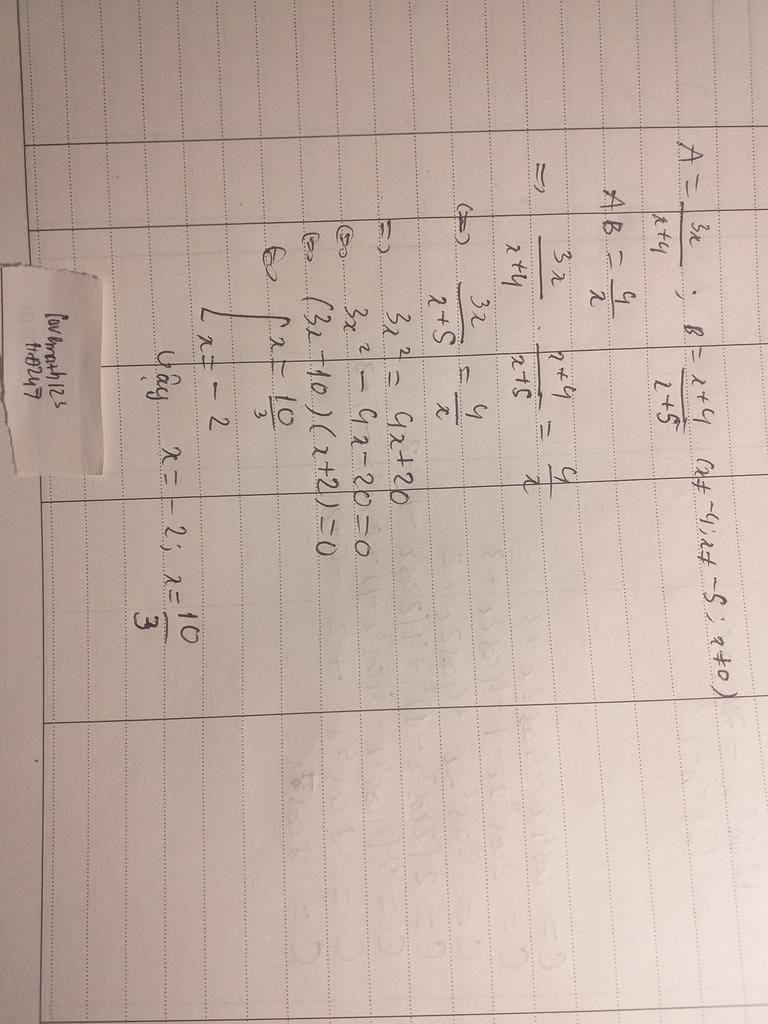 A = 3x/x+4 ; B = x+4/x+5 (x≠ -4; x≠ -5; x≠0)
AB = 4/x
=> 3x/x+4 . x+4/x+5 = 4/x
<=> 3x/x+5 = 4/x
=> 3x² = 4x+20
<=> 3x² - 4x - 20 = 0
<=> (3x - 10)(x+2) = 0
<=> [ x = 10/3
x = - 2
Vậy x = - 2; x = 10/3